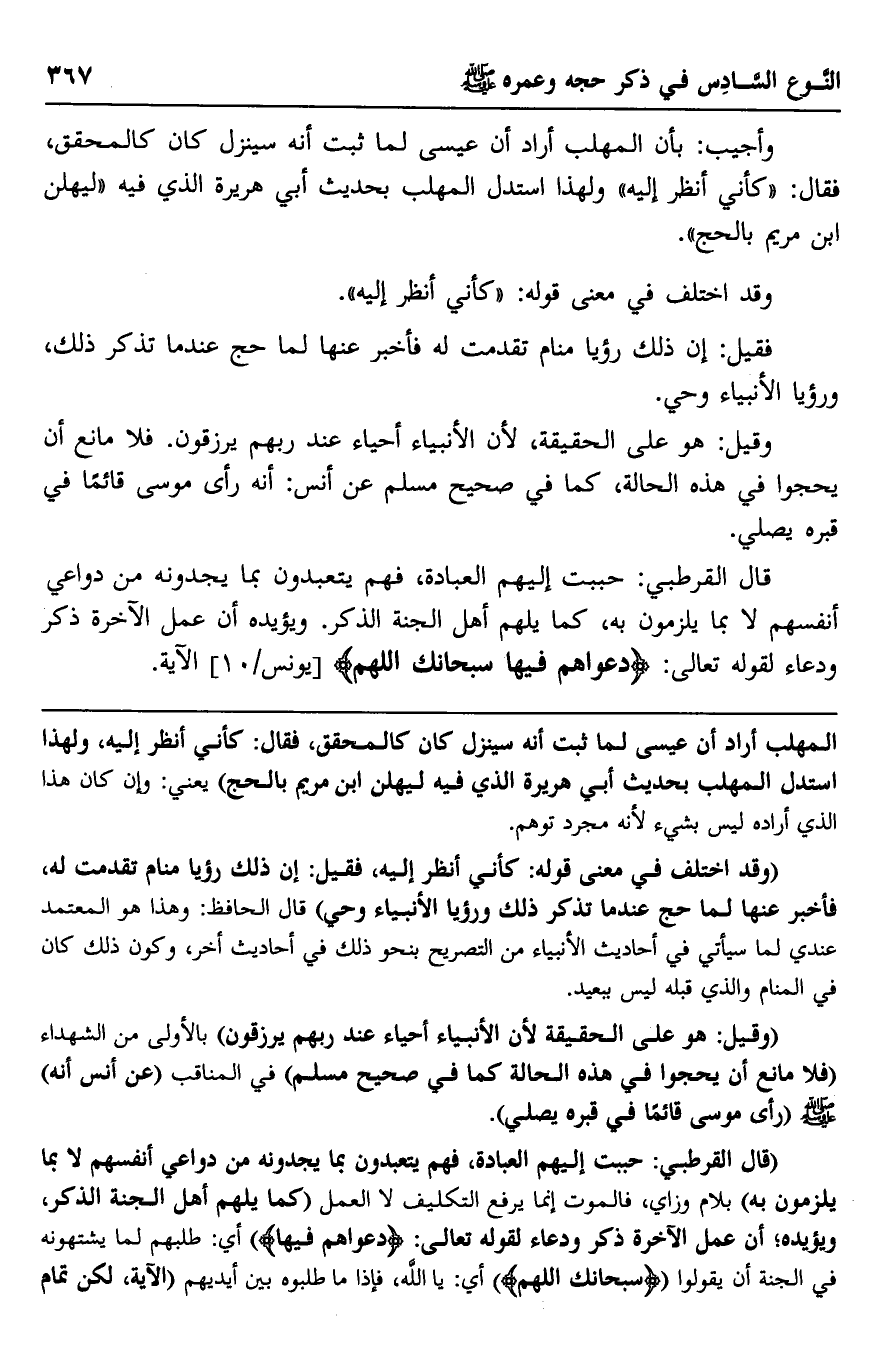 النَّوع السَّادِس في ذكر حجه وعمره ﷺ ٣٦٧
وأجيب: بأن المهلب أراد أن عيسى لما ثبت أنه سينزل كان كالمحقق،
فقال: «كأني أنظر إليه» ولهذا استدل المهلب بحديث أبي هريرة الذي فيه «ليهلن
ابن مريم بالحج».
وقد اختلف في معنى قوله: «كأني أنظر إليه».
فقيل: إن ذلك رؤيا منام تقدمت له فأخبر عنها لما حج عندما تذكر ذلك،
ورؤيا الأنبياء وحي.
وقيل: هو على الحقيقة، لأن الأنبياء أحياء عند ربهم يرزقون. فلا مانع أن
يحجوا في هذه الحالة، كما في صحيح مسلم عن أنس: أنه رأى موسى قائمًا في
قبره يصلي.
قال القرطبي: حببت إليهم العبادة، فهم يتعبدون بما يجدونه من دواعي
أنفسهم لا بما يلزمون به، كما يلهم أهل الجنة الذكر. ويؤيده أن عمل الآخرة ذكر
ودعاء لقوله تعالى: ﴿دعواهم فيها سبحانك اللهم﴾ [يونس/١٠] الآية.
المهلب أراد أن عيسى لما ثبت أنه سينزل كان كالمحقق، فقال: كأني أنظر إليه، ولهذا
استدل المهلب بحديث أبي هريرة الذي فيه ليهلن ابن مريم بالحج) يعني: وإن كان هذا
الذي أراده ليس بشيء لأنه مجرد توهم.
(وقد اختلف في معنى قوله: كأني أنظر إليه، فقيل: إن ذلك رؤيا منام تقدمت له،
فأخبر عنها لما حج عندما تذكر ذلك ورؤيا الأنبياء وحي) قال الحافظ: وهذا هو المعتمد
عندي لما سيأتي في أحاديث الأنبياء من التصريح بنحو ذلك في أحاديث أخر، وكون ذلك كان
في المنام والذي قبله ليس ببعيد.
(وقيل: هو على الحقيقة لأن الأنبياء أحياء عند ربهم يرزقون) بالأولى من الشهداء
(فلا مانع أن يحجوا في هذه الحالة كما في صحيح مسلم) في المناقب (عن أنس أنه)
ﷺ (رأى موسى قائمًا في قبره يصلي).
(قال القرطبي: حببت إليهم العبادة، فهم يتعبدون بما يجدونه من دواعي أنفسهم لا بما
يلزمون به) بلام وزاي، فالموت إنما يرفع التكليف لا العمل (كما يلهم أهل الجنة الذكر،
ويؤيده؛ أن عمل الآخرة ذكر ودعاء لقوله تعالى: ﴿دعواهم فيها﴾) أي: طلبهم لما يشتهونه
في الجنة أن يقولوا (﴿سبحانك اللهم﴾) أي: يا اللَّه، فإذا ما طلبوه بين أيديهم (الآية، لكن تمام